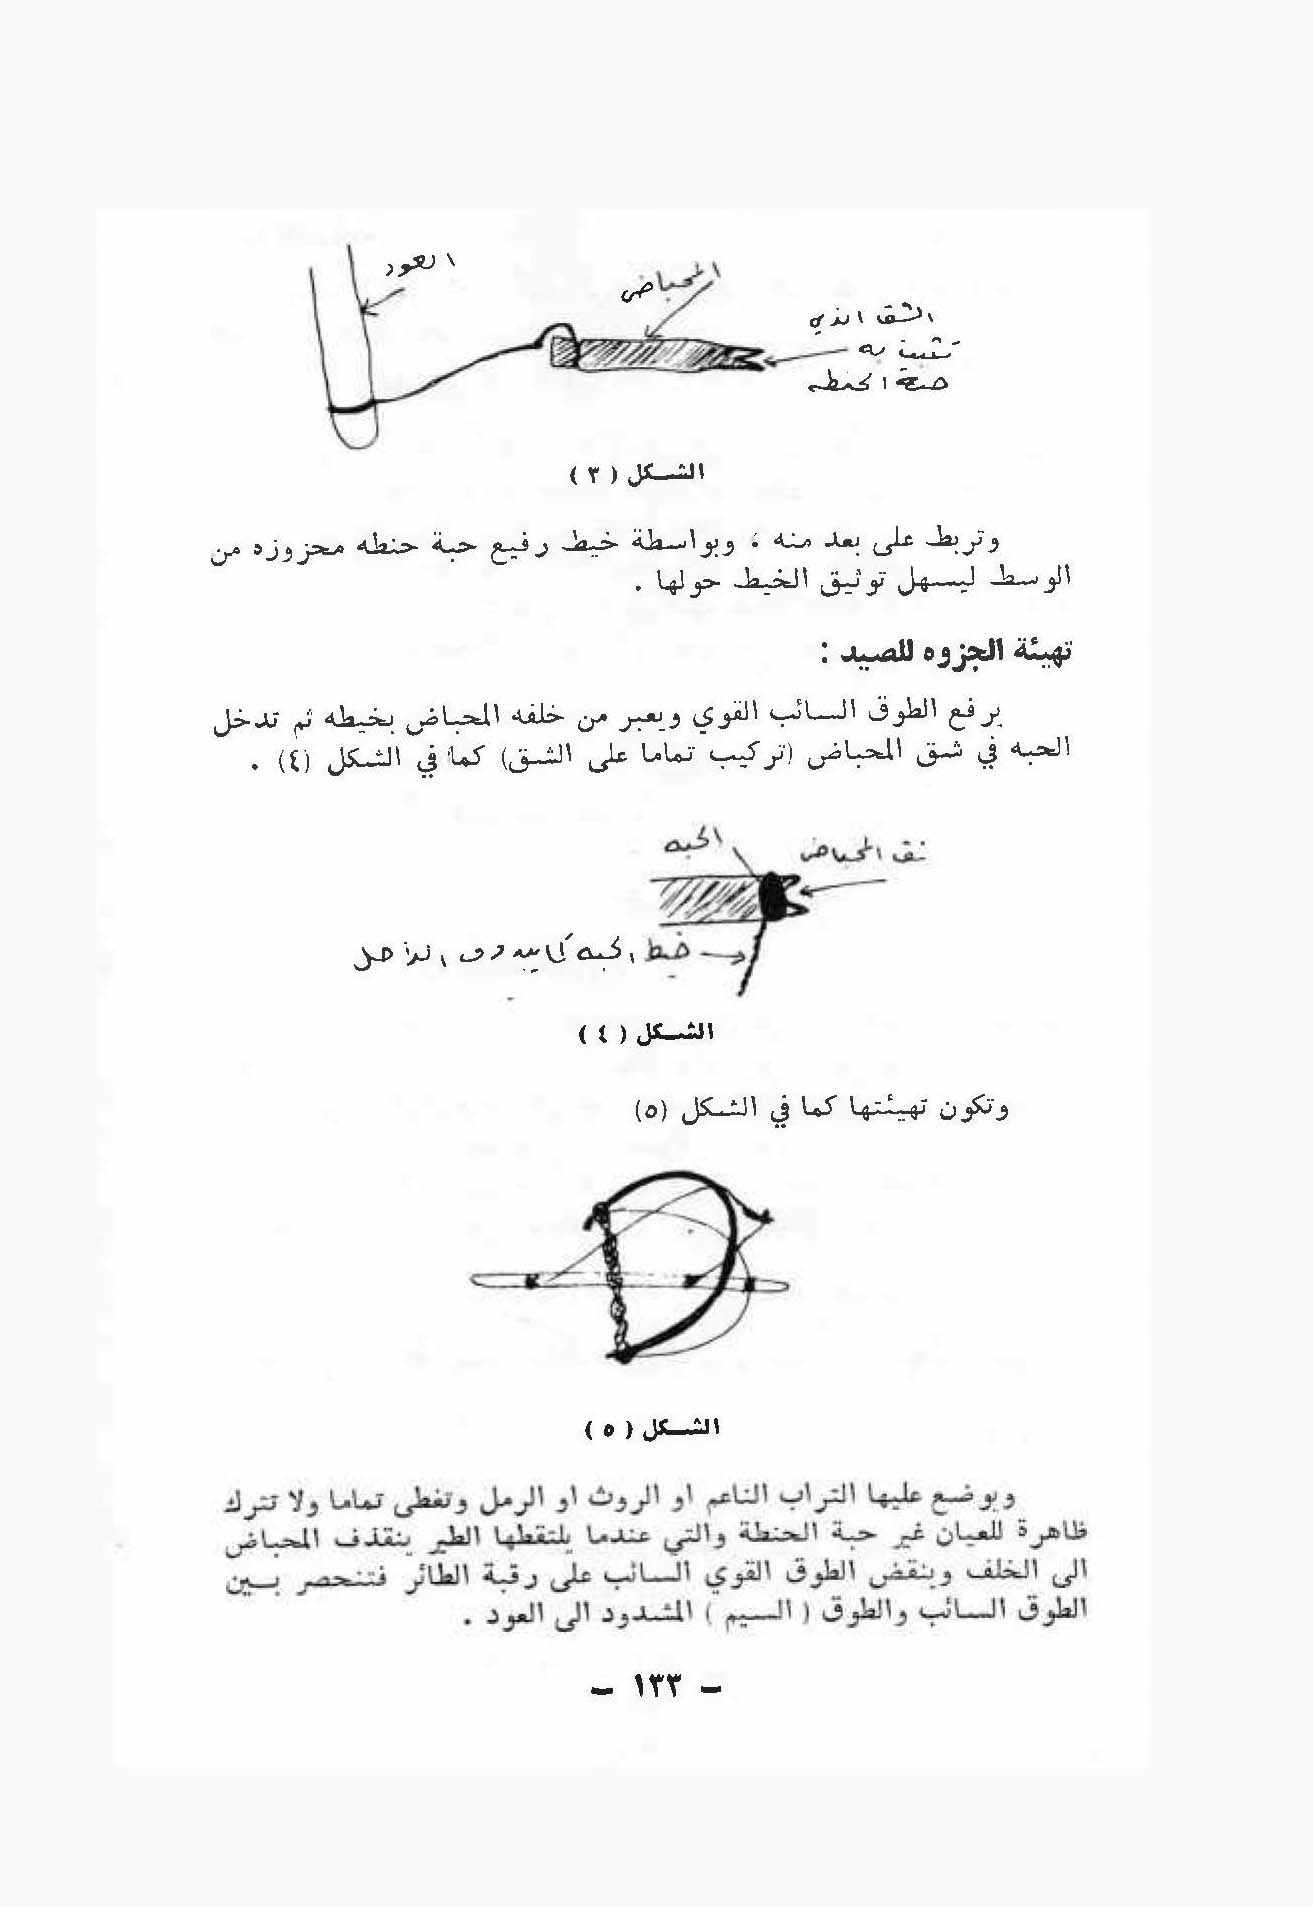 العود
المحباض
الشق الذي
تثبت به
حبة الحنطه
الشكل ( ٣ )
وتربط على بعد منه ، وبواسطة خيط رفيع حبة حنطه محزوزه من
الوسط ليسهل توثيق الخيط حولها .
تهيئة الجزوه للصيد :
يرفع الطوق السائب القوي ويعبر من خلفه المحباض بخيطه ثم تدخل
الحبه في شق المحباض (تركيب تماما على الشق) كما في الشكل (٤) .
الحبه
شق المحباض
خيط الحبه الداخل
الشكل ( ٤ )
وتكون تهيئتها كما في الشكل (٥)
الشكل ( ٥ )
ويوضع عليها التراب الناعم او الروث او الرمل وتغطى تماما ولا تترك
ظاهرة للعيان غير حبة الحنطة والتي عندما يلتقطها الطير ينقذف المحباض
الى الخلف وينقض الطوق القوي السائب على رقبة الطائر فتنحصر بين
الطوق السائب والطوق ( السيم ) المشدود الى العود .
- ١٣٣ -